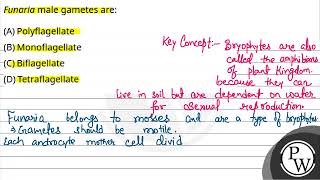 Funaria male gametes are:
(A) Polyflagellate
(B) Monoflagellate
(C) Biflagellate
(D) Tetraflagellate
Key Concept:- Bryophytes are also
called the amphibians
of plant kingdom.
because they can
live in soil but are dependent on water
for sexual reproduction.
Funaria belongs to mosses and are a type of bryophytes.
⇒ Gametes should be motile.
Each androcyte mother cell divid
PW